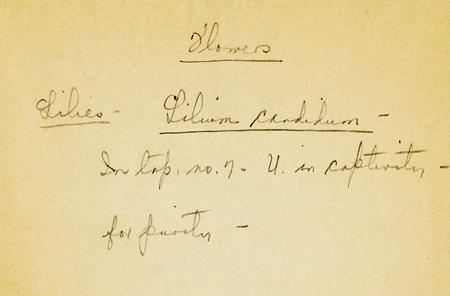 Flowers
Lilies - Lilium candidum -
In tap. no. 7 - U. in captivity -
for purity -